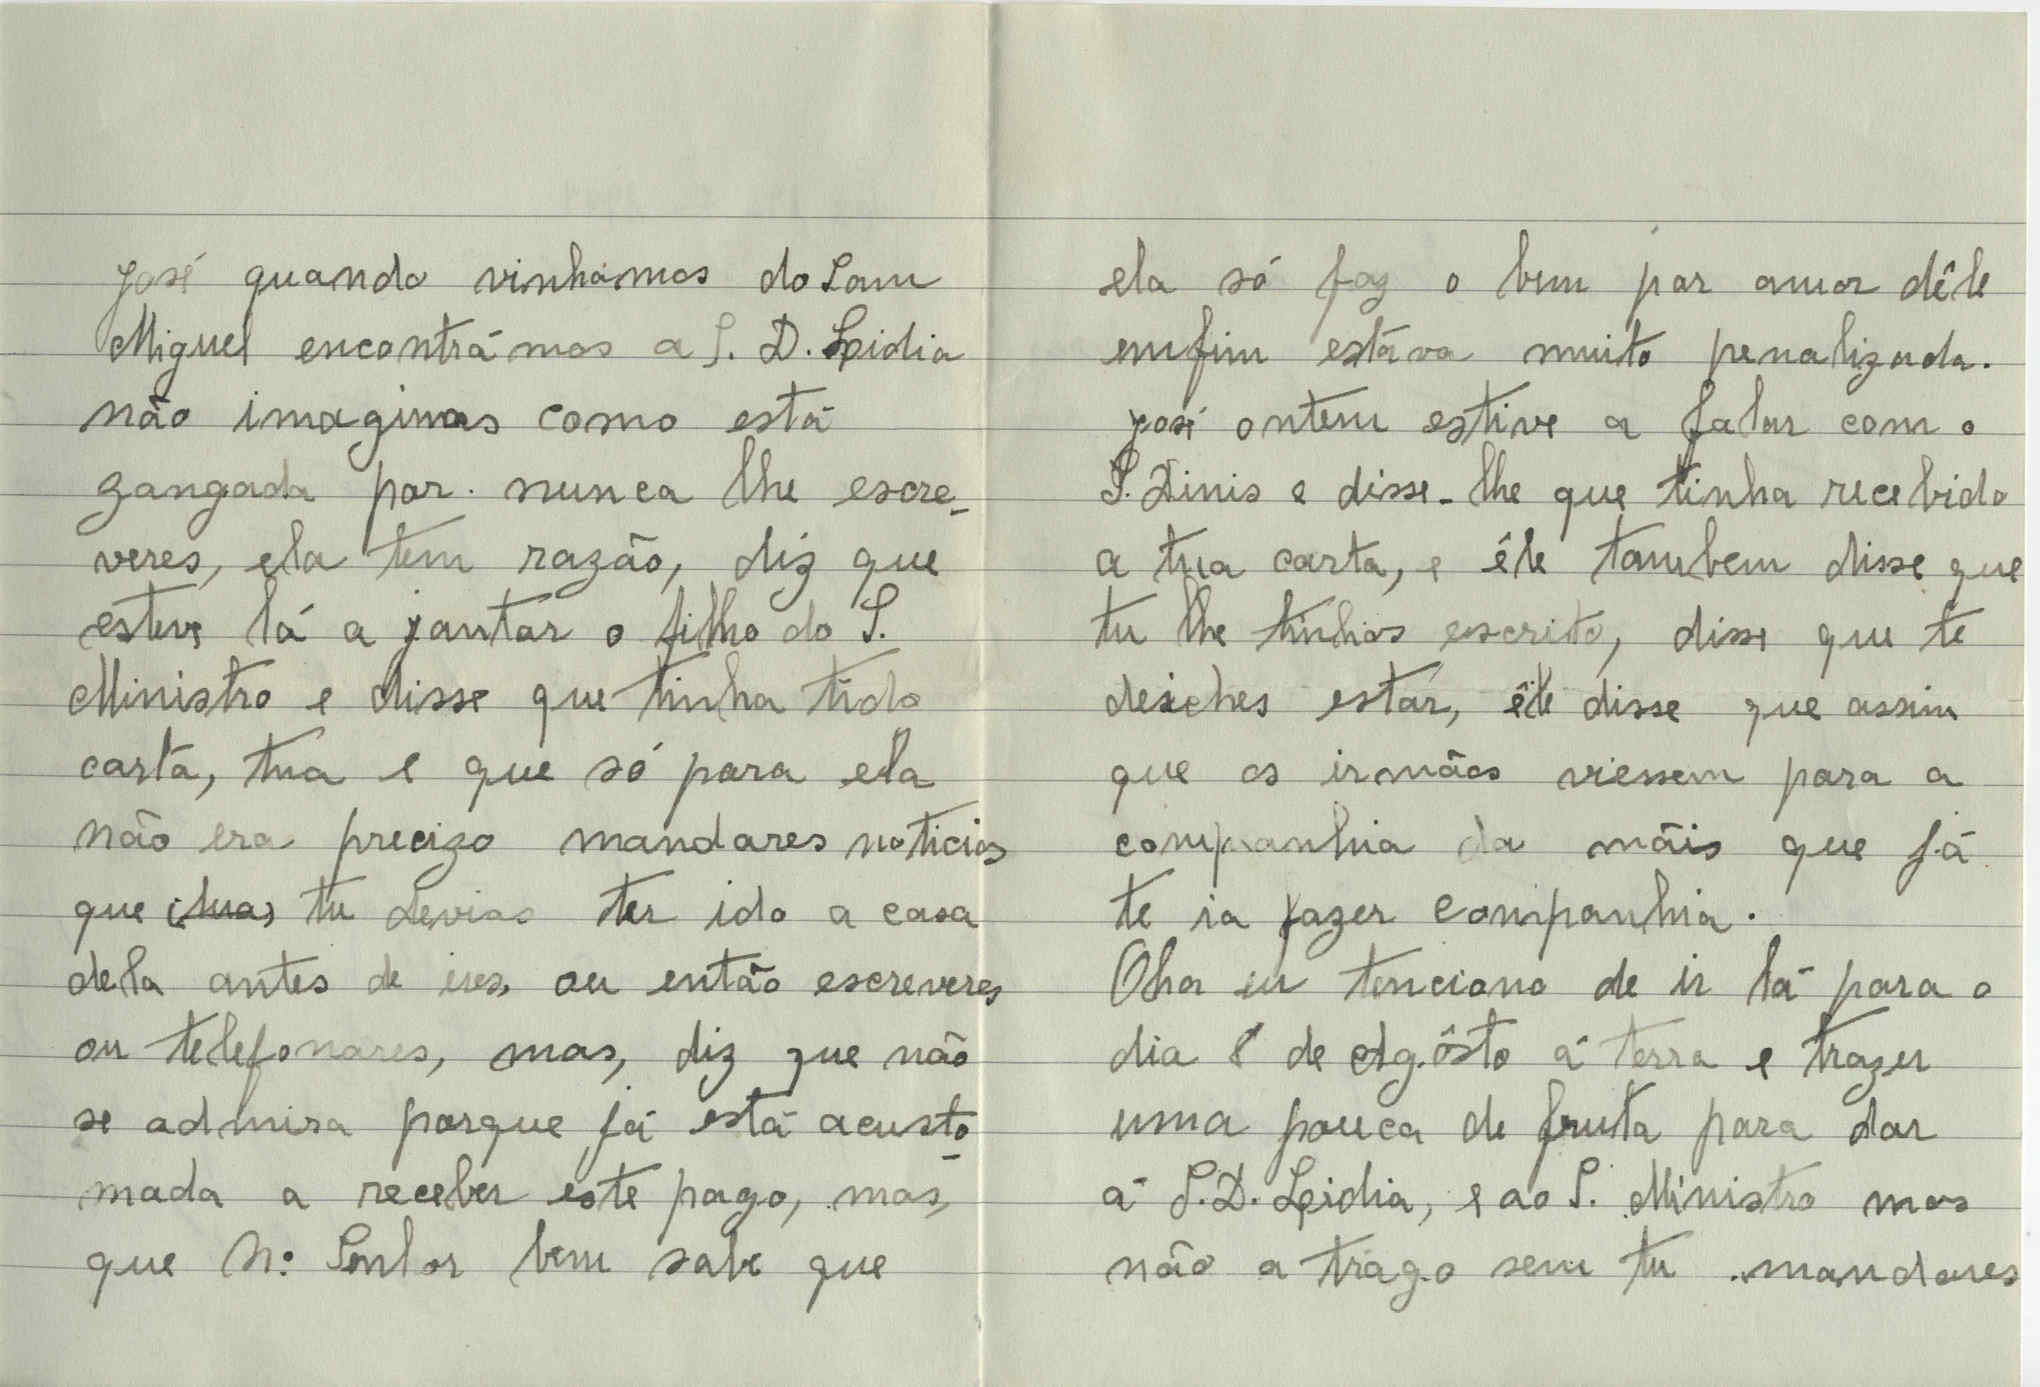 José quando vinhamos do Sam
Miguel encontrámos a S. D. Lidia
não imaginas como está
zangada por nunca lhe escre-
veres, ela tem razão, diz que
esteve lá a jantar o filho do S.
Ministro e disse que tinha tido
carta, tua e que só para ela
não era precizo mandares noticias
que tu devias ter ido a casa
dela antes de ires, ou então escreveres
ou telefonares, mas, diz que não
se admira porque já está acusto-
mada a receber este pago, mas,
que N.º Senhor bem sabe que
ela só faz o bem por amor dêle
emfim estáva muito penalizada.
José ontem estive a falar com o
S. Dinis e disse-lhe que tinha recebido
a tua carta, e êle tambem disse que
tu lhe tinhas escrito, disse que te
deiches estar, êle disse que assim
que os irmãos viessem para a
companhia da mãis que já
te ia fazer companhia.
Olha eu tenciono de ir lá para o
dia 8 de Agôsto á terra e trazer
uma pouca de fruta para dar
á S. D. Lidia, e ao S. Ministro mas
não a trago sem tu mandares